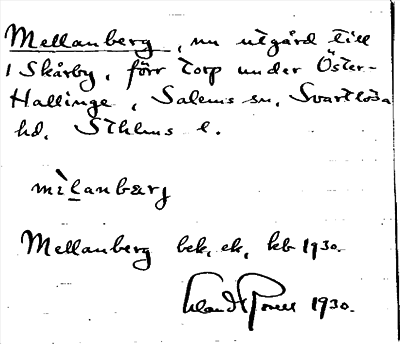 Mellanberg, nu utgård till
1 Skårby, förr torp under Öster-
Hallinge, Salems sn, Svartlösa
hd, Sthlms l.
mìlanbærj
Mellanberg bek, ek, kb 1930.
1930.